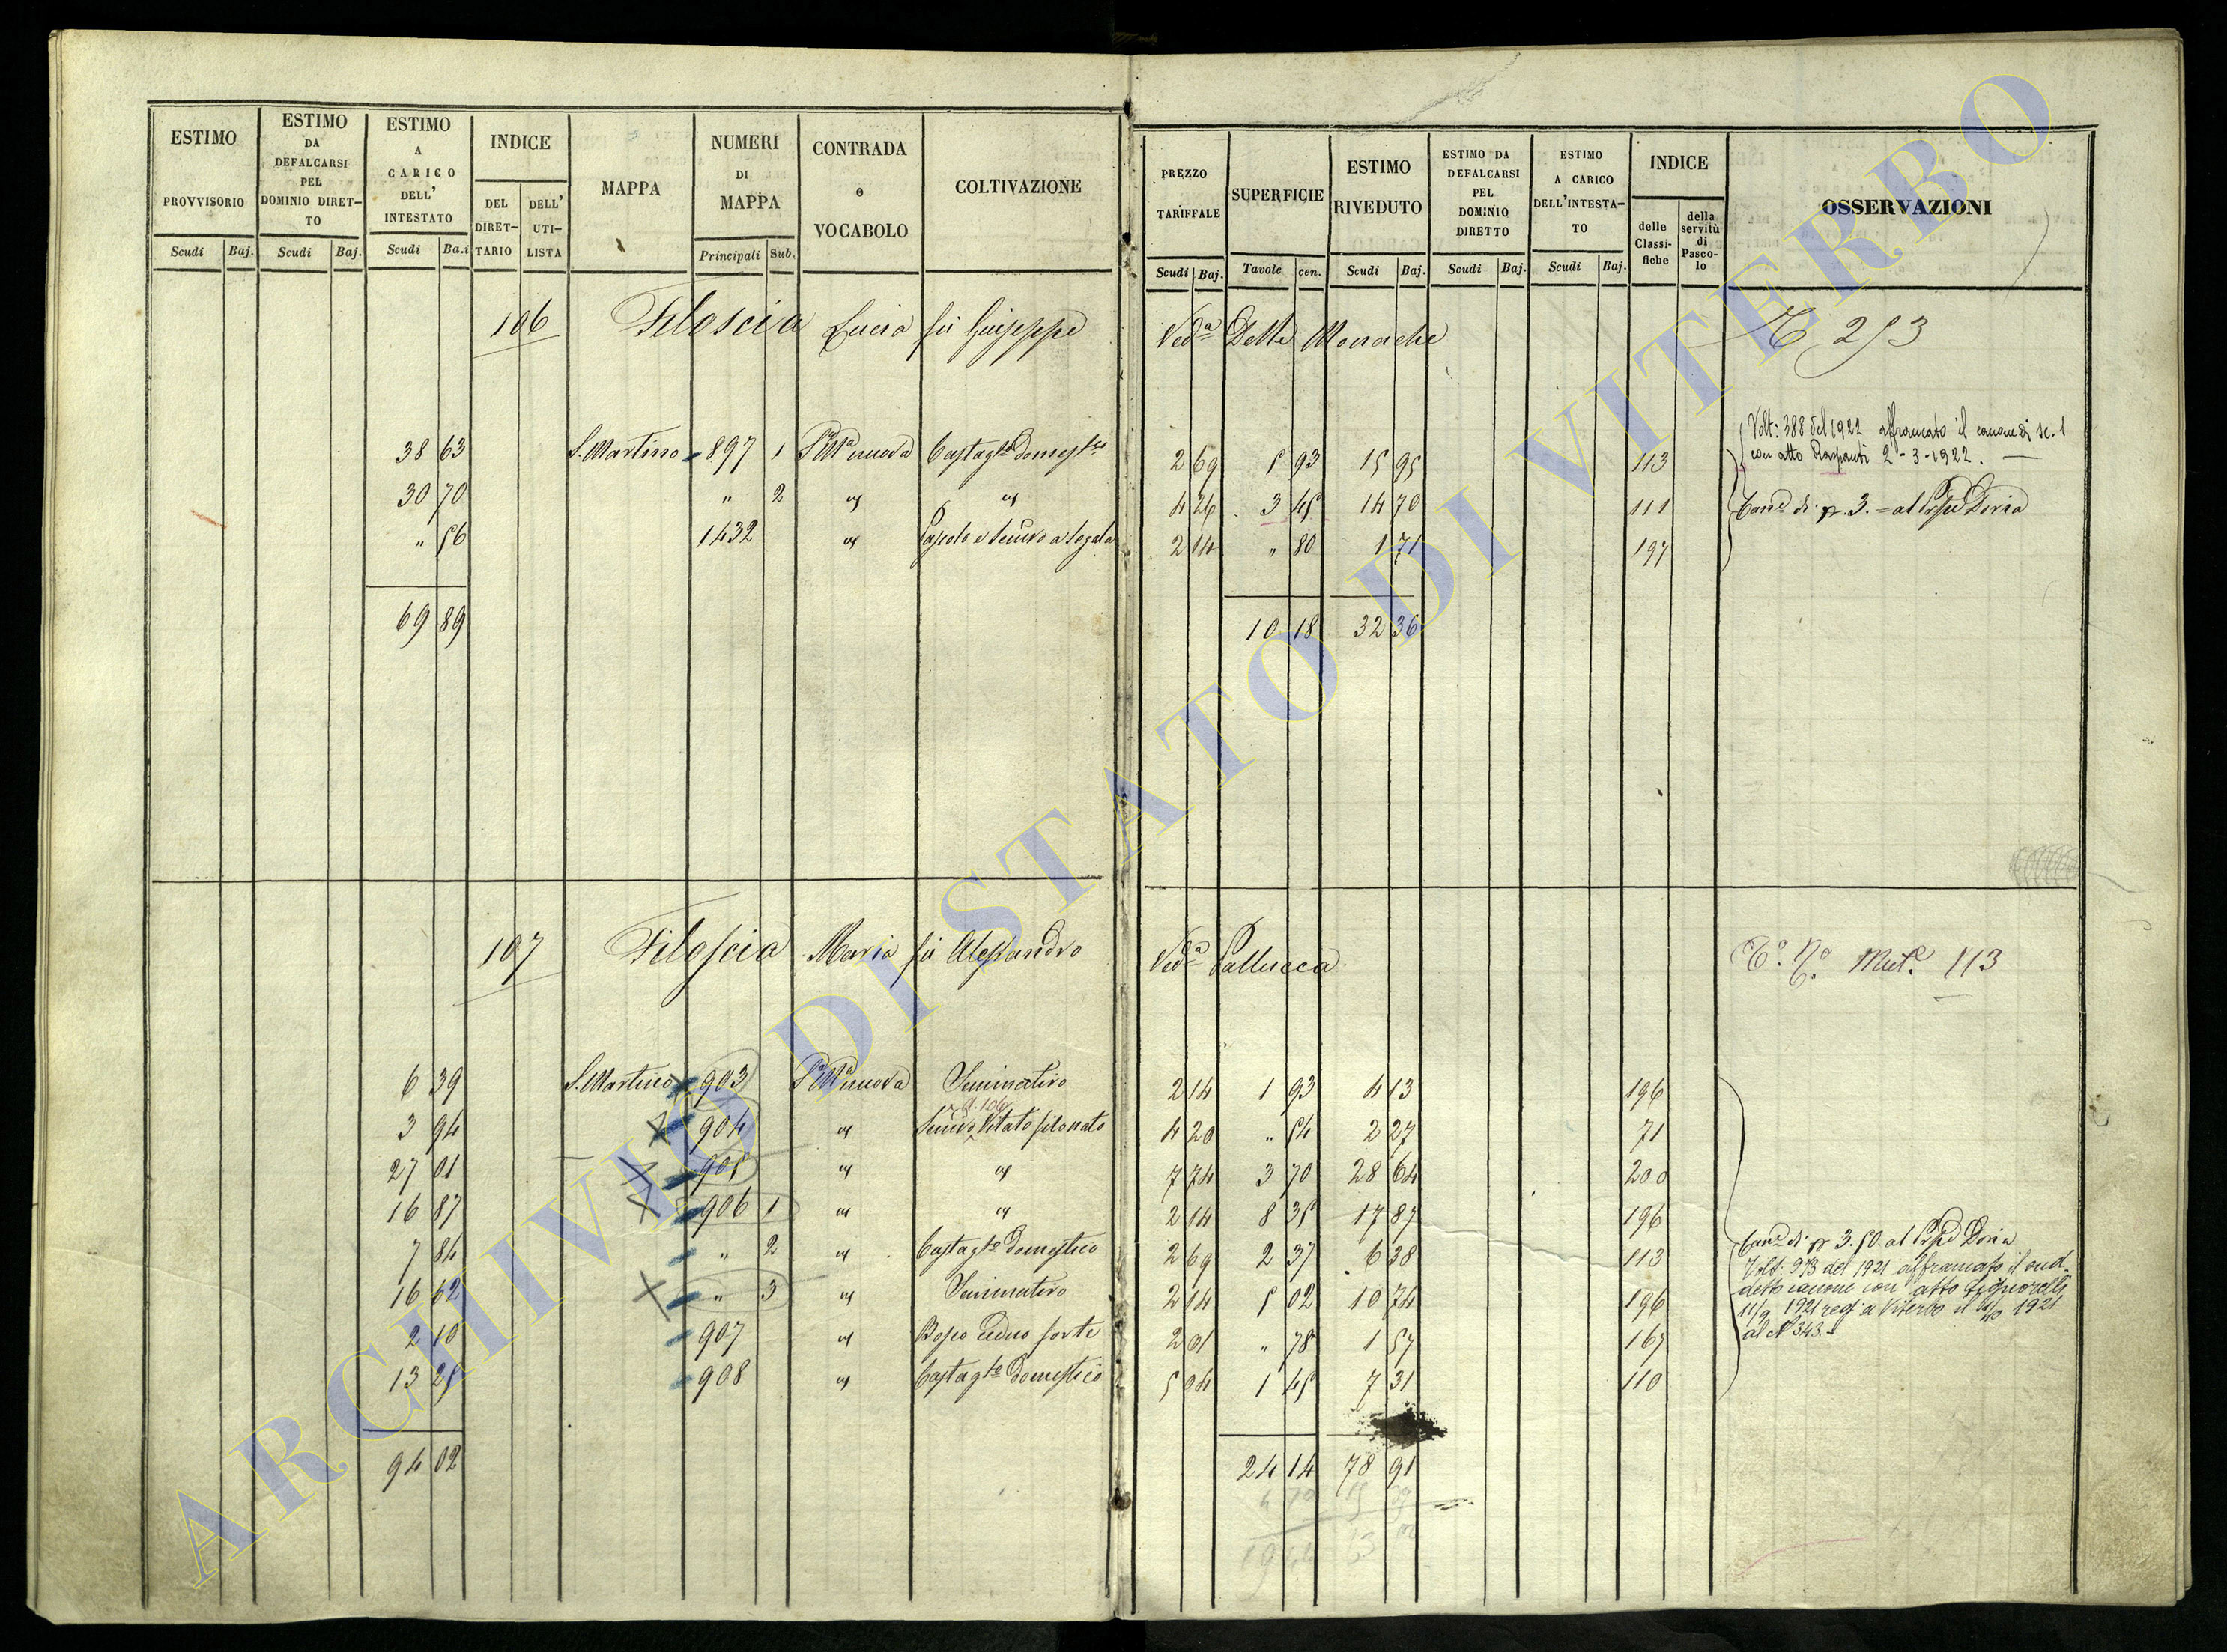 ESTIMO PROVVISORIO Scudi Baj.
ESTIMO DA DEFALCARSI PEL DOMINIO DIRET-TO Scudi Baj.
ESTIMO A CARICO DELL' INTESTATO Scudi Ba.i
INDICE DEL DIRET-TARIO DELL' UTI-LISTA
MAPPA
NUMERI DI MAPPA Principali Sub.
CONTRADA e VOCABOLO
COLTIVAZIONE
PREZZO TARIFFALE Scudi Baj.
SUPERFICIE Tavole cen.
ESTIMO RIVEDUTO Scudi Baj.
ESTIMO DA DEFALCARSI PEL DOMINIO DIRETTO Scudi Baj.
ESTIMO A CARICO DELL'INTESTA-TO Scudi Baj.
INDICE delle Classi-fiche della servitù di Pasco-lo
OSSERVAZIONI
106 Filoscia Lucia fù Giuseppe Ved.ª Delle Monache 253
Volt: 388 del 1922 affrancato il canone di sc. 1
con atto 2-3-1922.
38 63 S. Martino 897 1 P. M.ª nuova Castag.to domest.co 2 69 5 93 15 95 113
30 70 " 2 " " 4 26 3 45 14 70 111 Can.e di 3. = al Doria
" 56 1432 " Pascolo e 2 14 " 80 1 71 197
69 89 10 18 32 36
107 Filoscia Maria fù Alessandro Ved.ª Pallucca Mut.e 113
6 39 S. Martino 903 P. M.ª nuova Seminativo 2 14 1 93 4 13 196
3 94 904 " Semvo Vitato filonato 4 20 " 54 2 27 71
27 01 905 " " 7 74 3 70 28 64 200
16 87 906 1 " " 2 14 8 35 17 87 196
7 84 " 2 " Castag.to domestico 2 69 2 37 6 38 113 Can.e di 3.50. al Doria
Volt: 973 del 1921 affrancato il sud-
16 62 " 3 " Seminativo 2 14 5 02 10 74 196 detto canone con atto Signorelli
1921 reg.° a Viterbo il 1921
2 10 907 " Bosco ceduo forte 2 01 " 78 1 57 167 al N° 343.-
13 25 908 " Castag.to domestico 5 04 1 45 7 31 110
94 02 24 14 78 91
ARCHIVIO DI STATO DI VITERBO